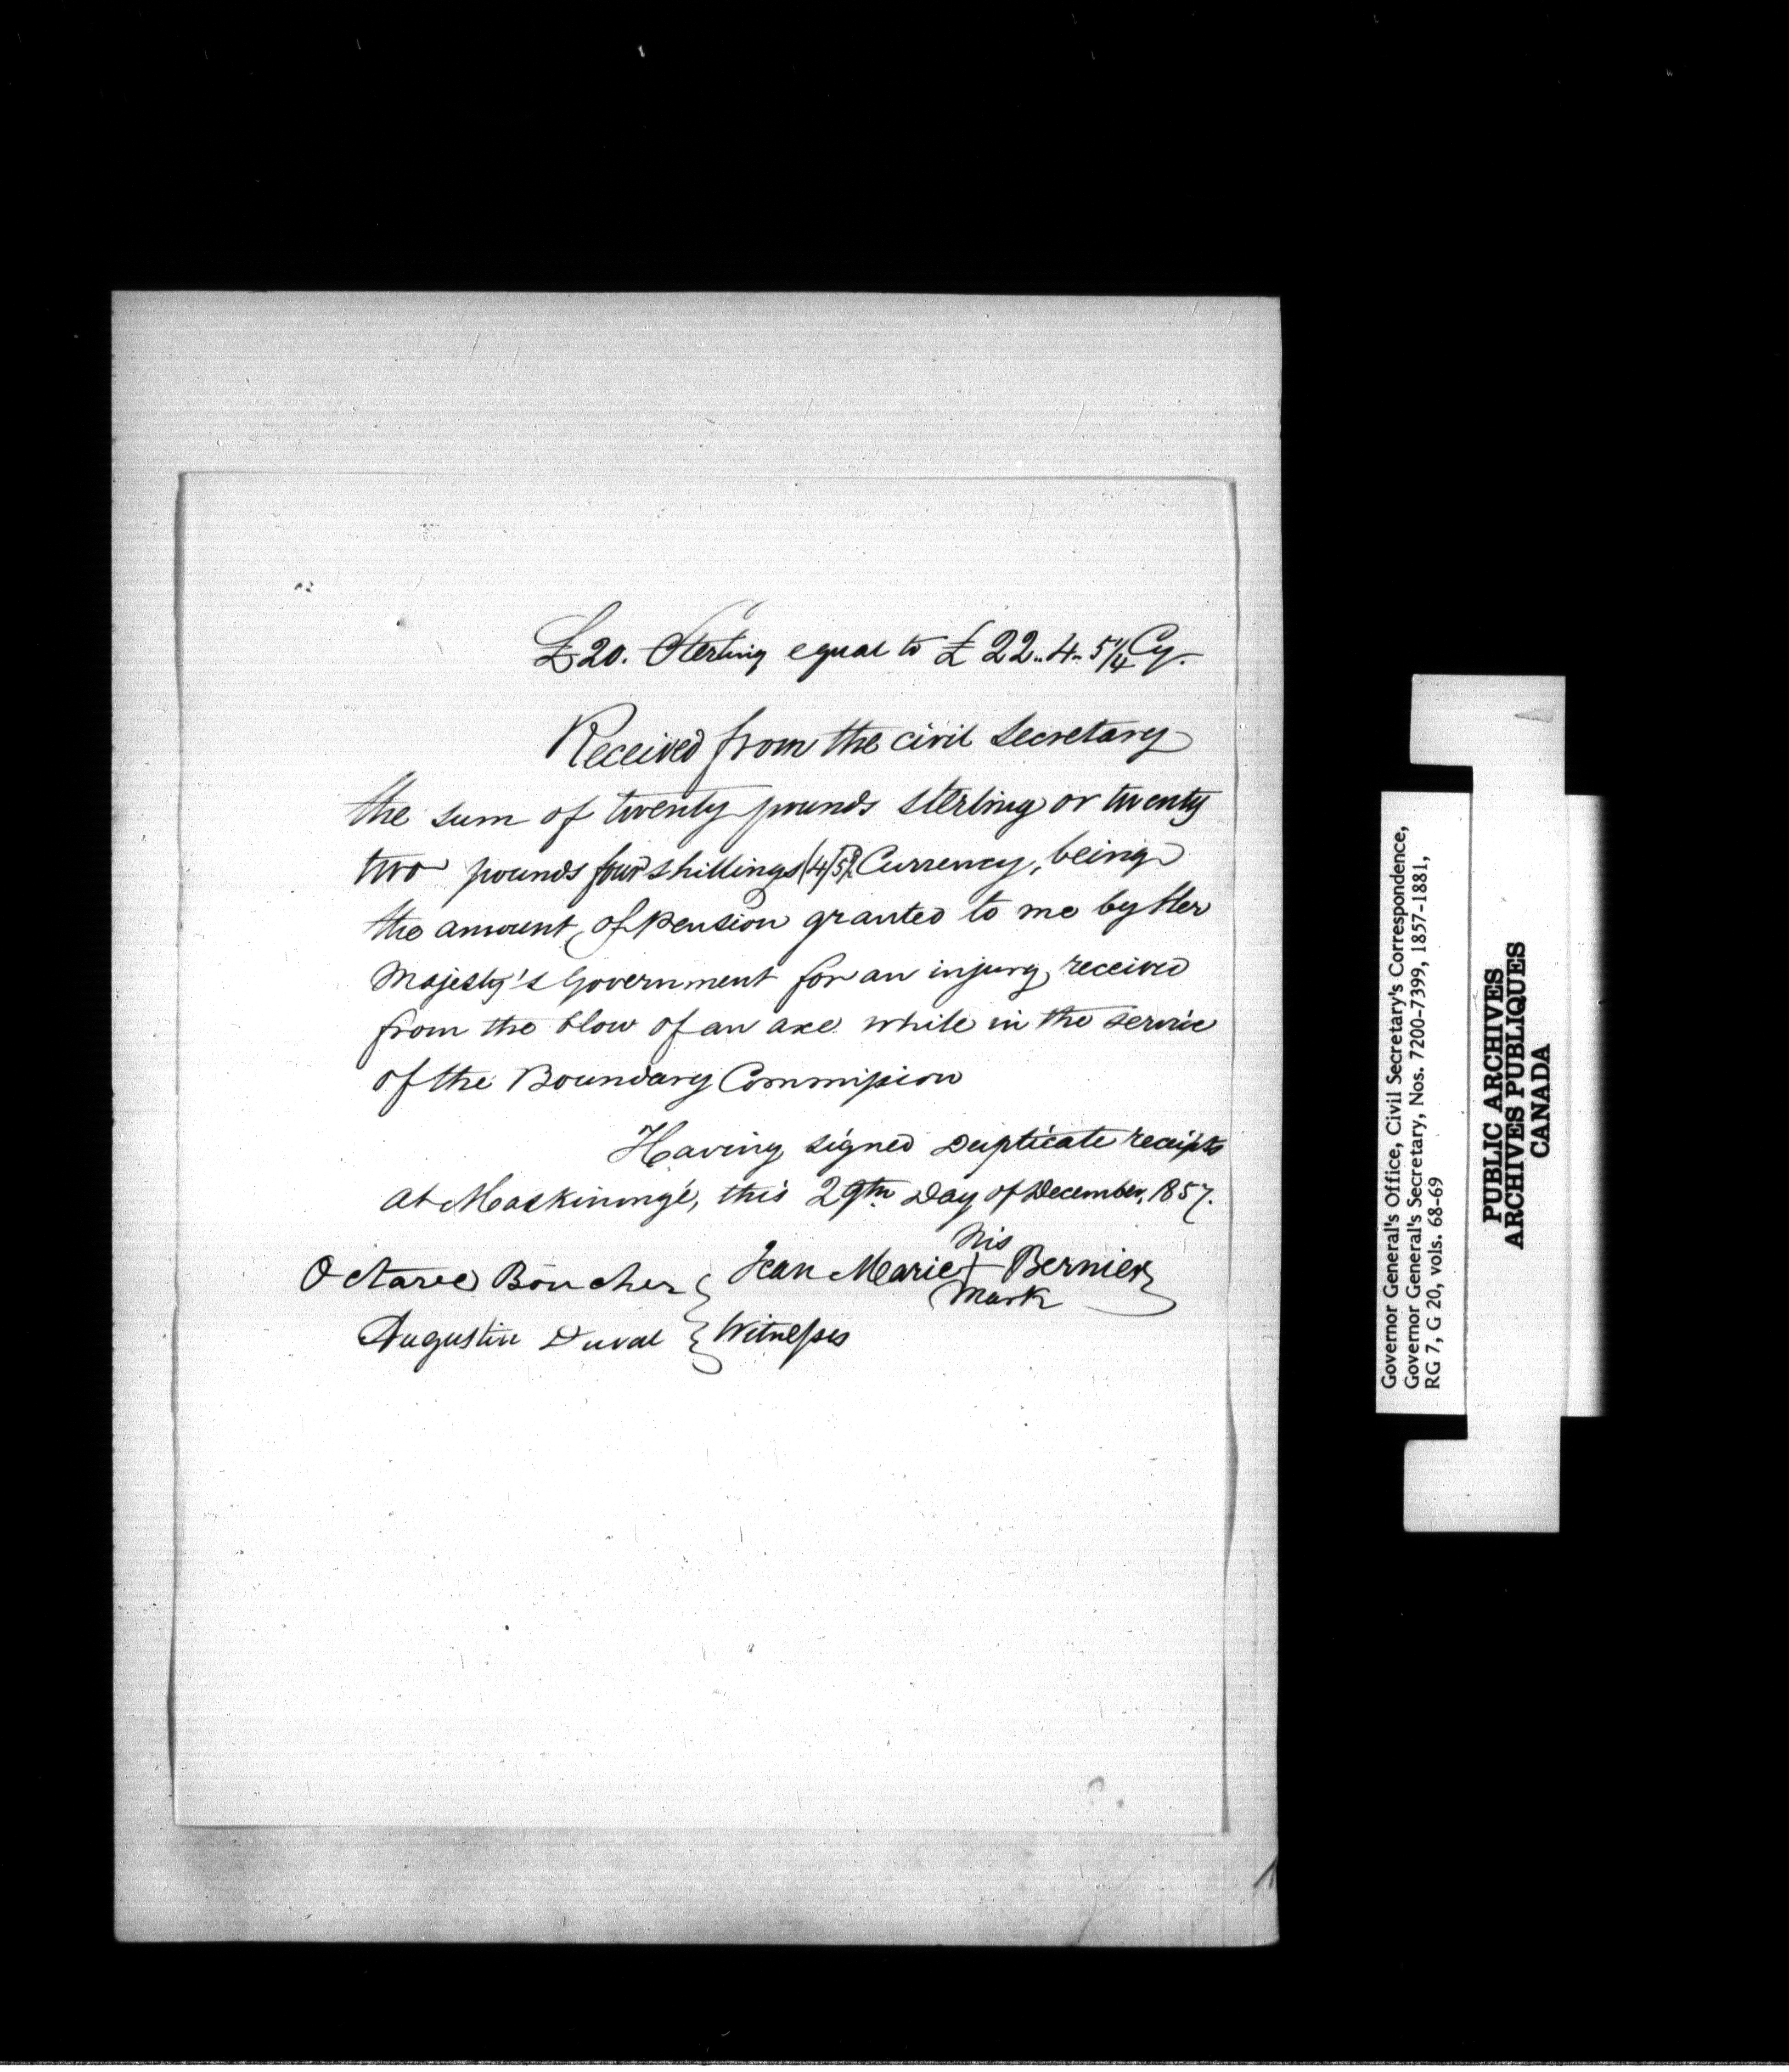 £20. Sterling equal to £22..4..5 1/4 Cy.
Received from the civil Secretary
the sum of twenty pounds sterling or twenty
two pounds four shillings Currency, being
the amount, of pension granted to me by Her
Majesty's Government for an injury, received
from the blow of an axe while in the service
of the Boundary Commission
Having signed Duplicate receipts
at Maskinongé, this 29th Day of December, 1857.
his
Octave Boucher } Jean Marie + Bernier
mark
Augustin Duval } Witnesses
Governor General's Office, Civil Secretary's Correspondence,
Governor General's Secretary, Nos. 7200-7399, 1857-1881,
RG 7, G 20, vols. 68-69
PUBLIC ARCHIVES
ARCHIVES PUBLIQUES
CANADA